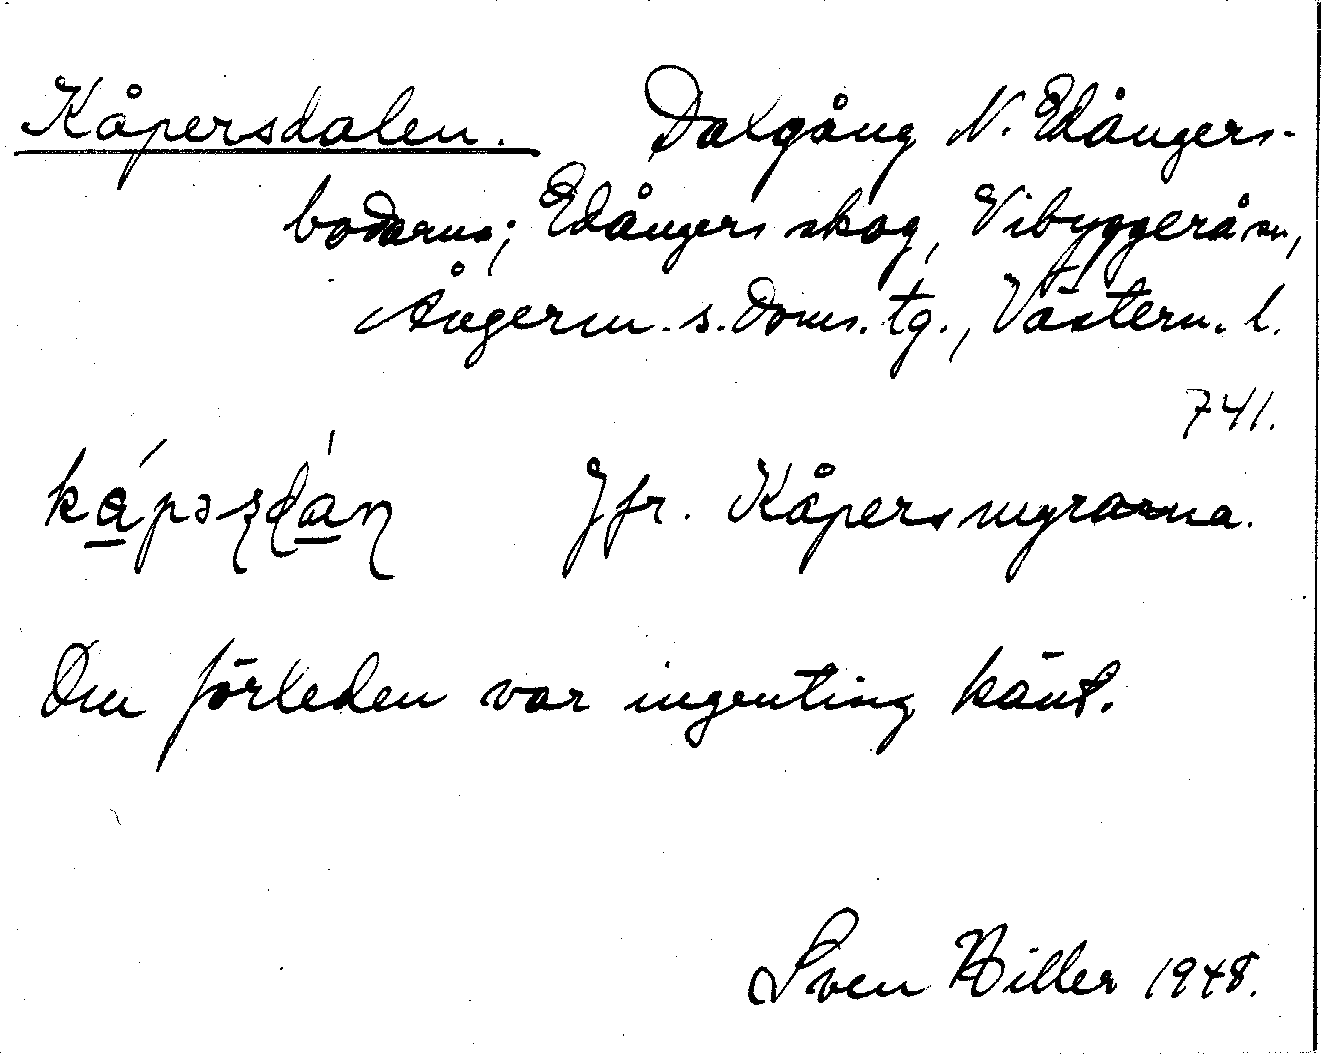 Kåpersdalen. Dalgång N. Edångers-
bodarna; Edångers skog, Vibyggerå sn,
Ångerm. s. doms. tg., Västern. l.
741.
kápəʂɖáɳ Jfr. Kåpersmyrarna.
Om förleden var ingenting känt.
Sven Hiller 1948.